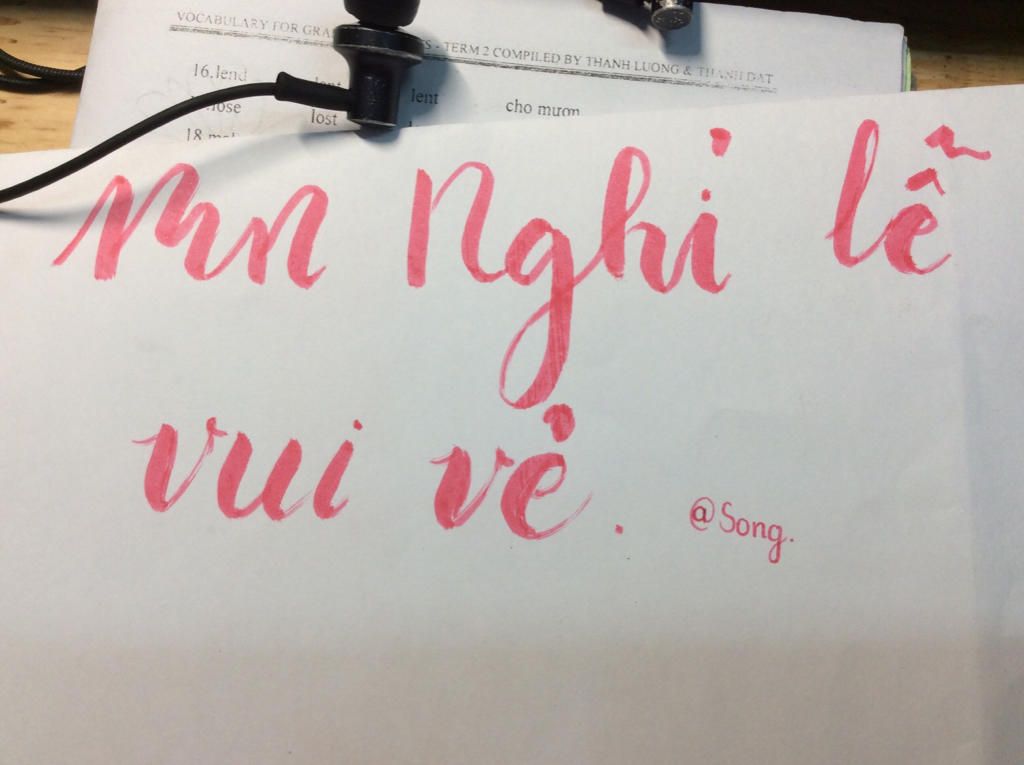 VOCABULARY FOR - TERM 2 COMPILED BY THANH LUONG & THANH DAT
16.lend lent lent cho mượn
lose lost
18.
Mn Nghỉ lễ
vui vẻ.
@Song.